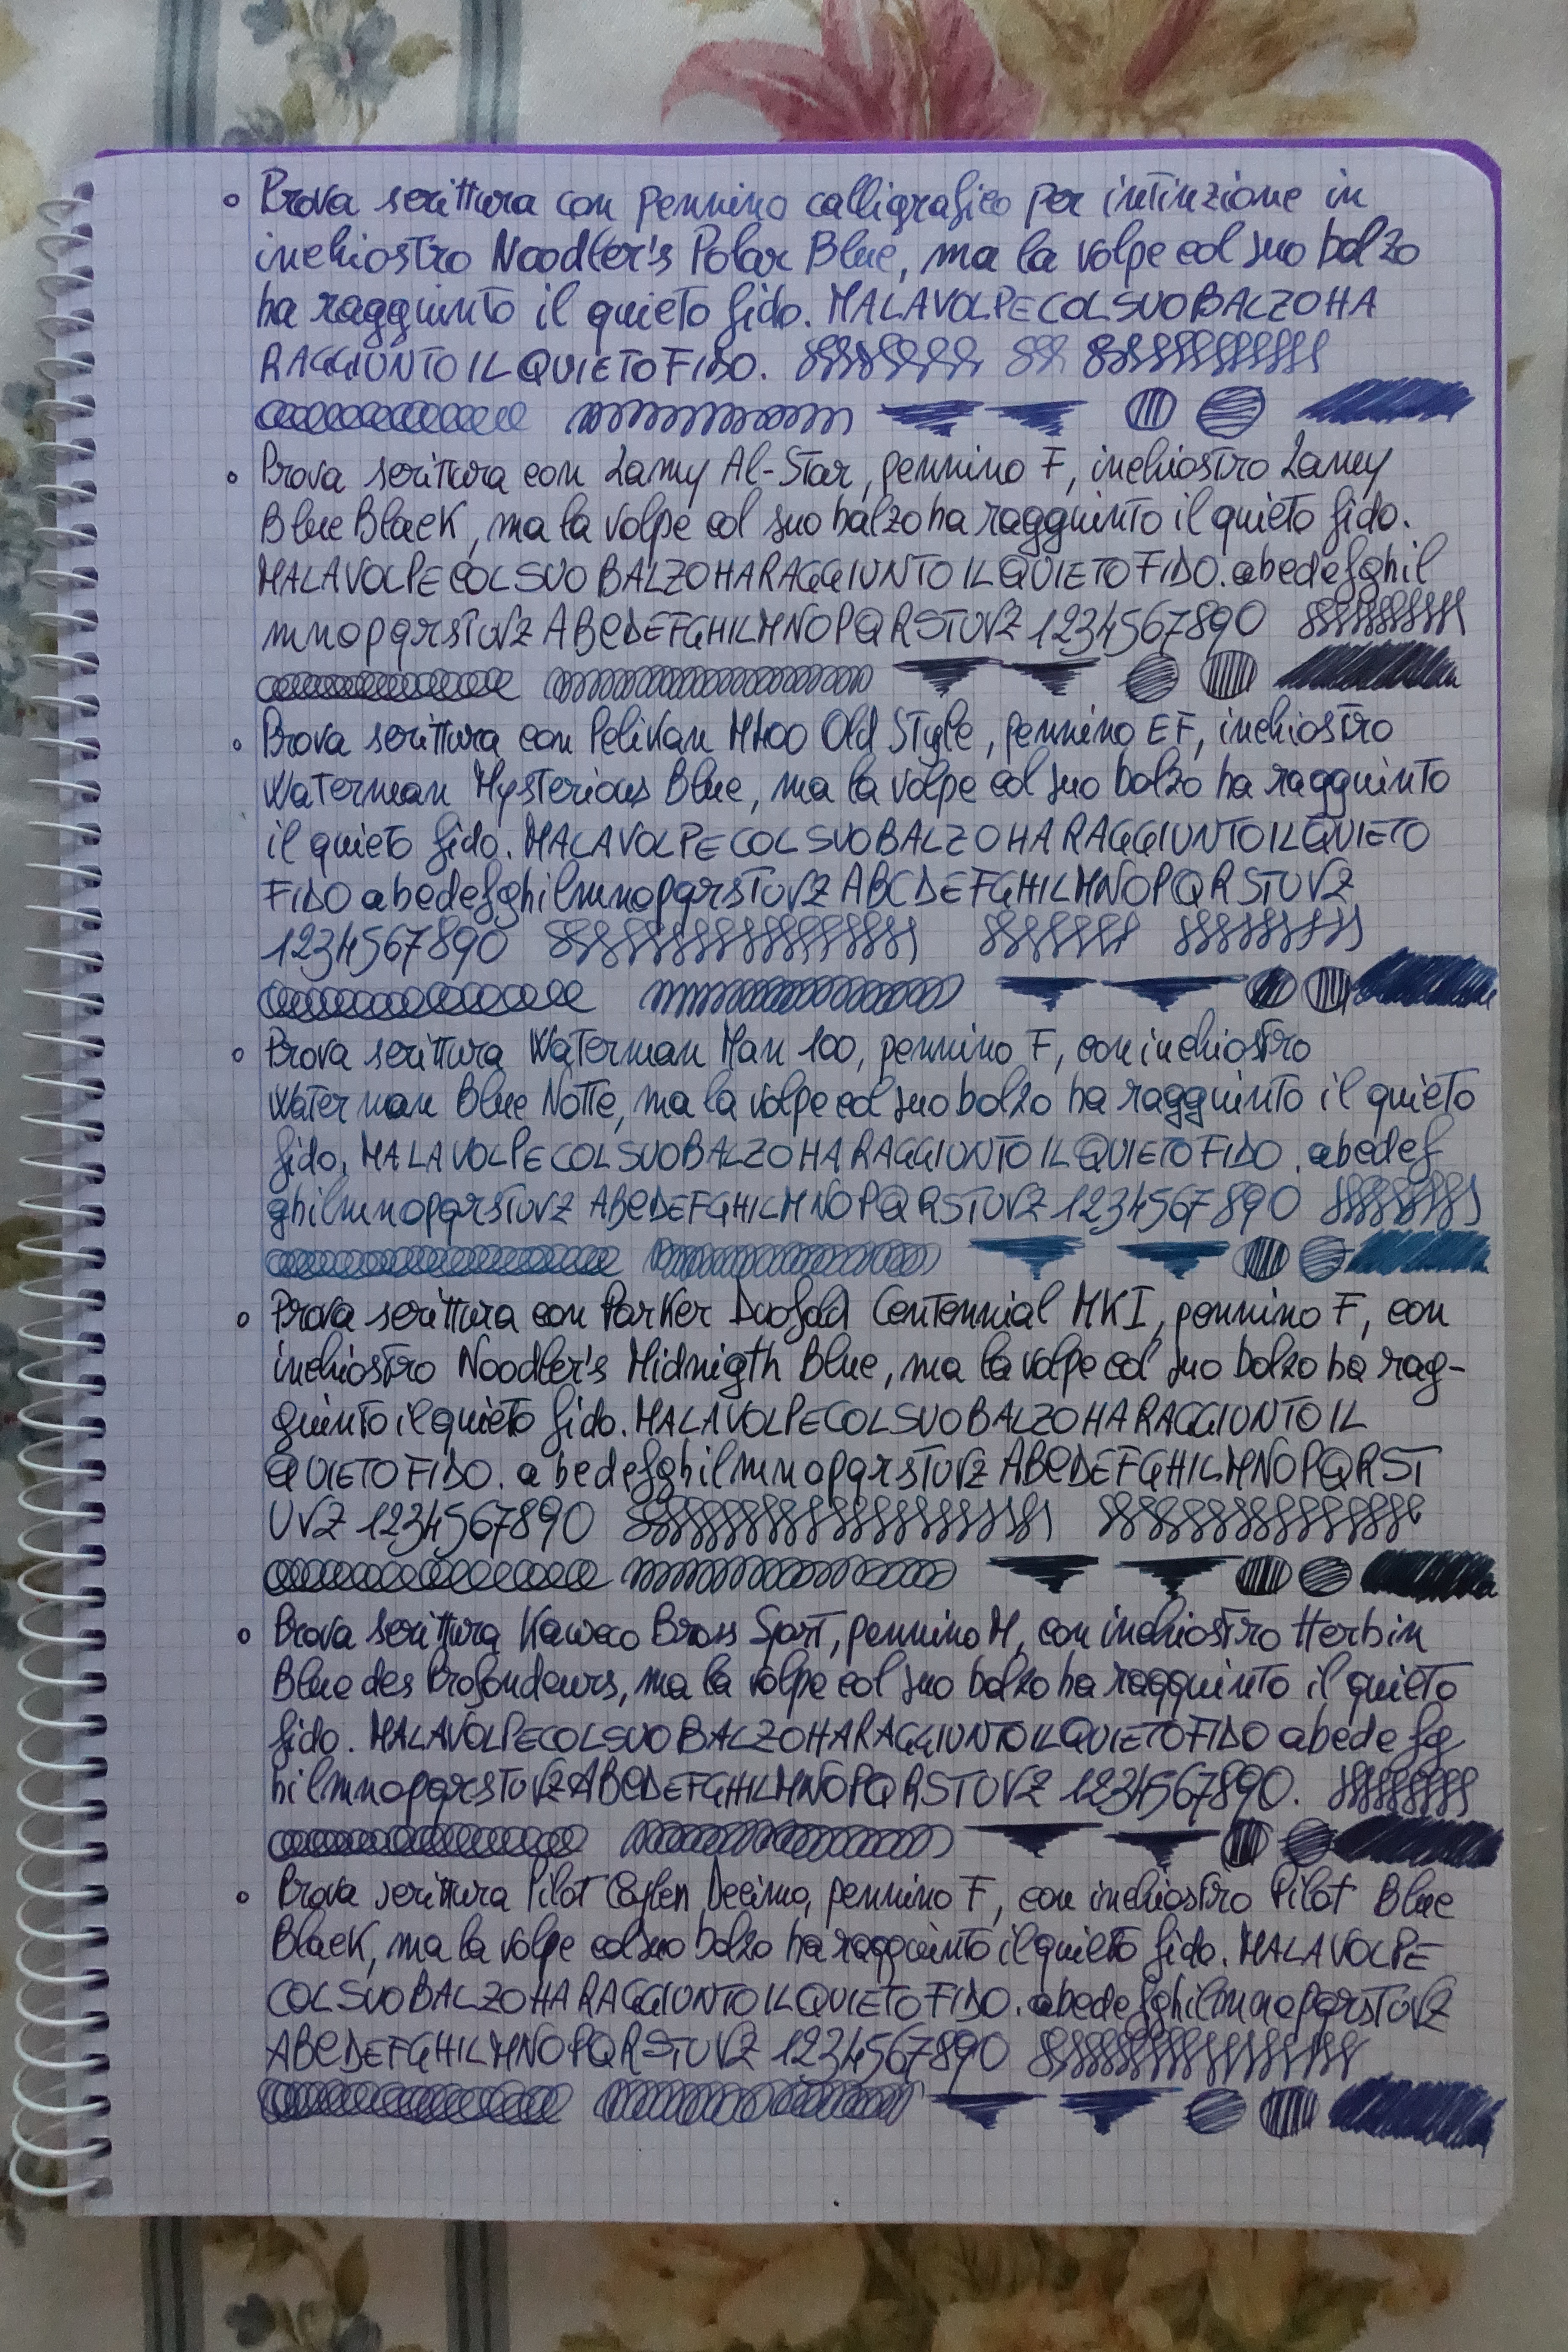 Prova scrittura con pennino calligrafico per intinzione in
inchiostro Noodler's Polar Blue, ma la volpe col suo balzo
ha raggiunto il quieto fido. MALAVOLPECOLSUOBALZOHA
RAGGIUNTOILQUIETOFIDO.
Prova scrittura con Lamy Al-Star, pennino F, inchiostro Lamy
Blue Black, ma la volpe col suo balzo ha raggiunto il quieto fido.
MALAVOLPECOLSUOBALZOHARAGGIUNTOILQUIETOFIDO. abcdefghil
mnopqrstuvz ABCDEFGHILMNOPQRSTUVZ 1234567890
Prova scrittura con Pelikan M400 Old Style, pennino EF, inchiostro
Waterman Mysterious Blue, ma la volpe col suo balzo ha raggiunto
il quieto fido. MALAVOLPECOLSUOBALZOHARAGGIUNTOILQUIETO
FIDO abcdefghilmnopqrstuvz ABCDEFGHILMNOPQRSTUVZ
1234567890
Prova scrittura Waterman Man 100, pennino F, con inchiostro
Waterman Blue Notte, ma la volpe col suo balzo ha raggiunto il quieto
fido. MALAVOLPECOLSUOBALZOHARAGGIUNTOILQUIETOFIDO. abcdef
ghilmnopqrstuvz ABCDEFGHILMNOPQRSTUVZ 1234567890
Prova scrittura con Parker Duofold Centennial MKI, pennino F, con
inchiostro Noodler's Midnigth Blue, ma la volpe col suo balzo ha rag-
giunto il quieto fido. MALAVOLPECOLSUOBALZOHARAGGIUNTOIL
QUIETOFIDO. abcdefghilmnopqrstuvz ABCDEFGHILMNOPQRST
UVZ 1234567890
Prova scrittura Kaweco Brass Sport, pennino M, con inchiostro Herbin
Blue des Profondeurs, ma la volpe col suo balzo ha raggiunto il quieto
fido. MALAVOLPECOLSUOBALZOHARAGGIUNTOILQUIETOFIDO abcdefg
hilmnopqrstuvz ABCDEFGHILMNOPQRSTUVZ 1234567890.
Prova scrittura Pilot Decimo, pennino F, con inchiostro Pilot Blue
Black, ma la volpe col suo balzo ha raggiunto il quieto fido. MALAVOLPE
COLSUOBALZOHARAGGIUNTOILQUIETOFIDO. abcdefghilmnopqrstuvz
ABCDEFGHILMNOPQRSTUVZ 1234567890